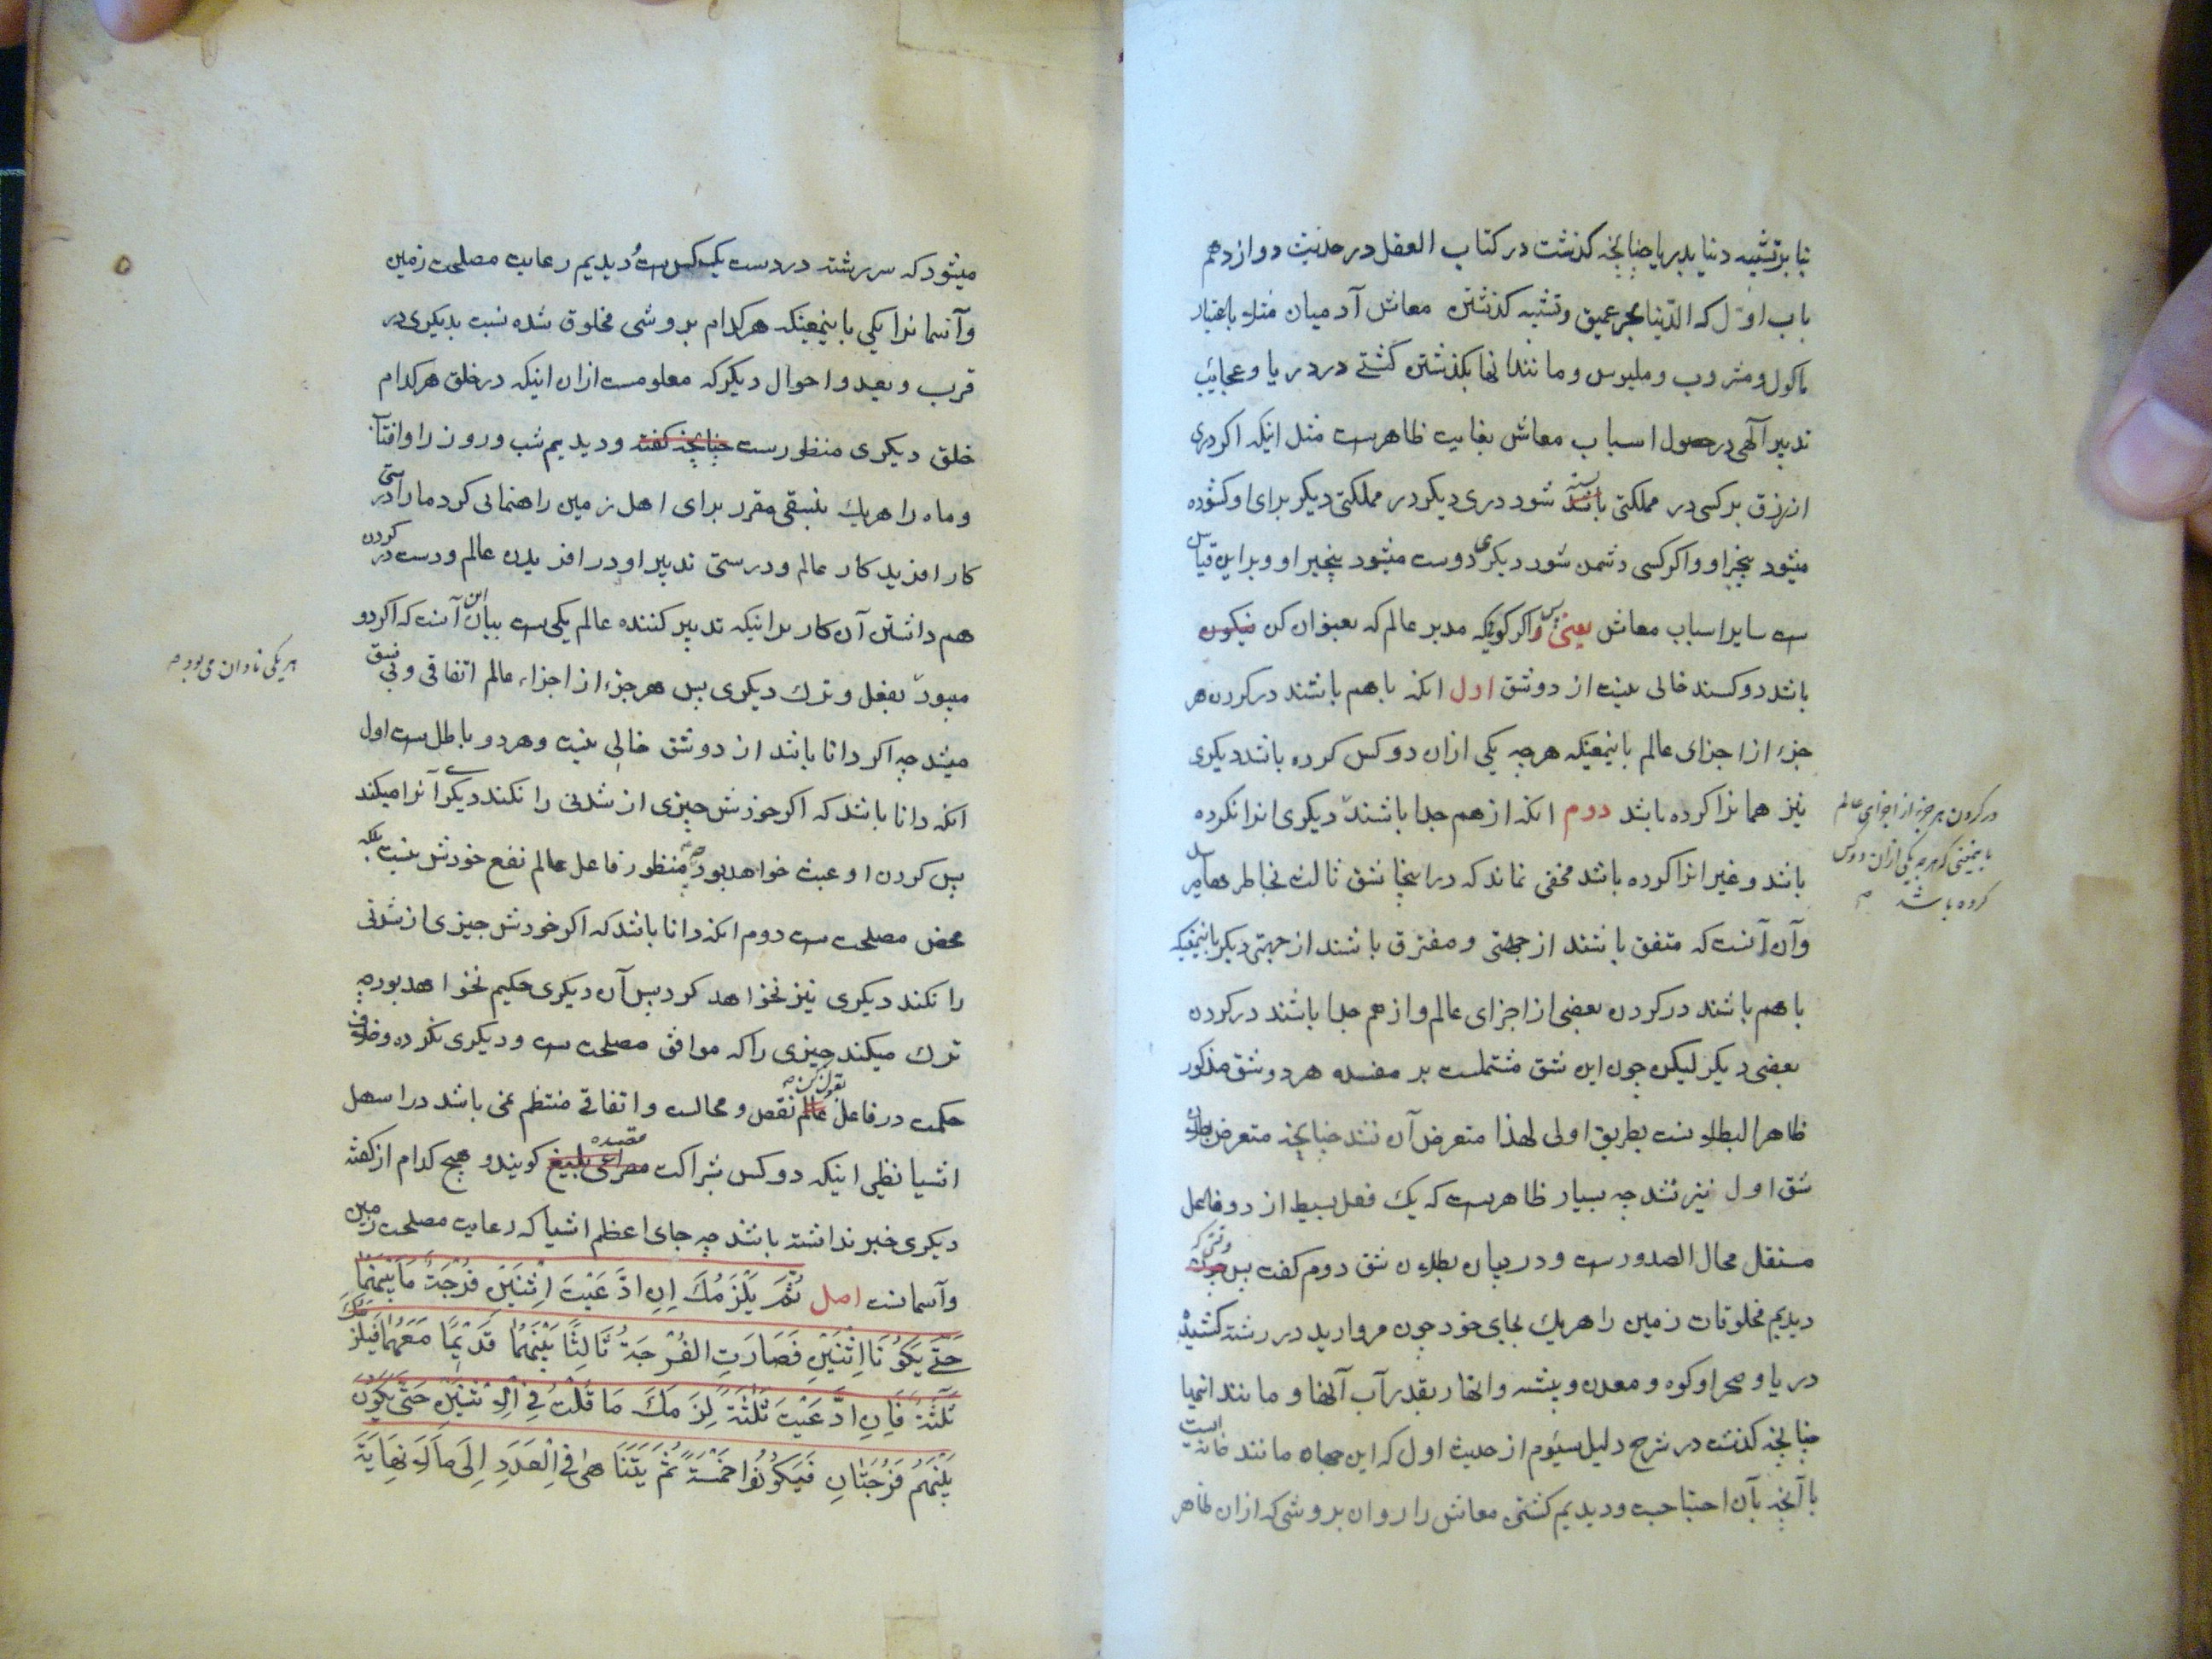 بنا بر تشبیه دنیا بدریا چنانچه گذشت در کتاب العقل در حدیث دوازدهم
باب اول که الدنیا بحر عمیق و تشبیه گذشتن معاش آدمیان مثلا باعتبار
ماکول و مشروب و ملبوس و مانند انها بگذشتن کشتی در دریا و عجایب
تدبیر الهی در حصول اسباب معاش بغایت ظاهرست مثل اینکه اگر دری
از رزق بر کسی در مملکتی بسته شود دری دیگر در مملکتی دیگر برای او گشوده
میشود بیخبر او و اگر کسی دشمن شود دیگری دوست میشود بیخبر او و بر این قیاس
ست سایر اسباب معاش یعنی پس اگر گوئیکه مدبر عالم که بعنوان کن فیکون
باشد دو کسند خالی نیست از دو شق اول انکه با هم باشند در کردن هر
جزء از اجزای عالم باینمعنیکه هرچه یکی ازان دو کس کرده باشد دیگری
نیز همانرا کرده باشد دوم انکه از هم جدا باشند دیگری انرا نکرده
در کردن هر جزء از اجزای عالم
باینمعنی که هرچه یکی ازان دو کس
کرده باشد
باشد و غیر انرا کرده باشد مخفی نماند که در اینجا شق ثالث بخاطر میرسد
و آن آنست که متفق باشند از جهتی و مفترق باشند از جهتی دیگر باینمعنیکه
با هم باشند در کردن بعضی از اجزای عالم و از هم جدا باشند در کردن
بعضی دیگر لیکن چون این شق مشتملست بر مفسده هر دو شق مذکور
ظاهر البطلانست بطریق اولی لهذا متعرض آن نشد چنانچه متعرض بطلان
شق اول نیز نشد چه بسیار ظاهرست که یک فعل بسیط از دو فاعل
مستقل محال الصدورست و در بیان بطلان شق دوم گفت پس وقتی که
دیدیم مخلوقات زمین را هریک بجای خود چون مروارید در رشته کشیده
دریا و صحرا و کوه و معدن و بیشه و انهار بقدر آب آنها و مانند انها
چنانچه گذشت در شرح دلیل سیوم از حدیث اول که این جهان مانند خانه ایست
با آنچه بآن احتیاجست و دیدیم کشتی معاش را روان بروشی که ازان ظاهر
میشود که سررشته در دست یک کس ست و دیدیم رعایت مصلحت زمین
و آسمانرا یکی باینمعنیکه هرکدام بروشی مخلوق شده نسبت بدیگری در
قرب و بعد و احوال دیگر که معلومست ازان اینکه در خلق هرکدام
خلق دیگری منظورست چنانچه گفته و دیدیم شب و روز را و افتاب
و ماه را هریک بنسقی مقرر برای اهل زمین راهنمائی کرد ما را درستی
کار افرید کار عالم و درستی تدبیر او در افریدن عالم و درست کردن
هم داشتن آن کار برانیکه تدبیر کننده عالم یکی ست بیان این آنست که اگر دو
میبود بفعل و ترک دیگری پس هر جزء از اجزاء عالم اتفاقی و بی نسق
هر یکی نادان می بود
میشد چه اگر دانا باشند از دو شق خالی نیست و هر دو باطل ست اول
انکه دانا باشد که اگر خودش چیزی از شدنی را نکند دیگری آنرا میکند
پس کردن او عبث خواهد بود چه منظور فاعل عالم نفع خودش نیست بلکه
محض مصلحت ست دوم انکه دانا باشد که اگر خودش چیزی از شدنی
را نکند دیگری نیز نخواهد کرد پس آن دیگری حکیم نخواهد بود چه
ترک میکند چیزی را که موافق مصلحت ست و دیگری نکرده و خلاف
حکمت در فاعل عالم بقول کن نقص و محالست و اتفاقی منتظم نمی باشد در اسهل
اشیا نظیر اینکه دو کس بشراکت مصرعی بلیغ قصیده گویند و هیچ کدام از گفته
دیگری خبر نداشته باشد چه جای اعظم اشیا که رعایت مصلحت زمین
و آسمانست اصل ثُمَّ یَلْزَمُكَ اِنِ ادَّعَیْتَ اِثْنَیْنِ فُرْجَةٌ مَا بَیْنَهُمَا
حَتّٰی یَکُونَا اِثْنَیْنِ فَصَارَتِ الفُرْجَةُ ثَالِثًا بَیْنَهُمَا قَدِیْمًا مَعَهُمَا فَیَلْزَمُكَ
ثَلٰثَةٌ فَاِنِ ادَّعَیْتَ ثَلٰثَةً لَزِمَكَ مَا قُلْتُ فِی الْاِثْنَیْنِ حَتّٰی یَکُونَ
بَیْنَهُمْ فُرْجَتَانِ فَیَکُونُوا خَمْسَةً ثُمَّ یَتَنَاهٰی فِی الْعَدَدِ اِلٰی مَا لَا نِهَایَةَ